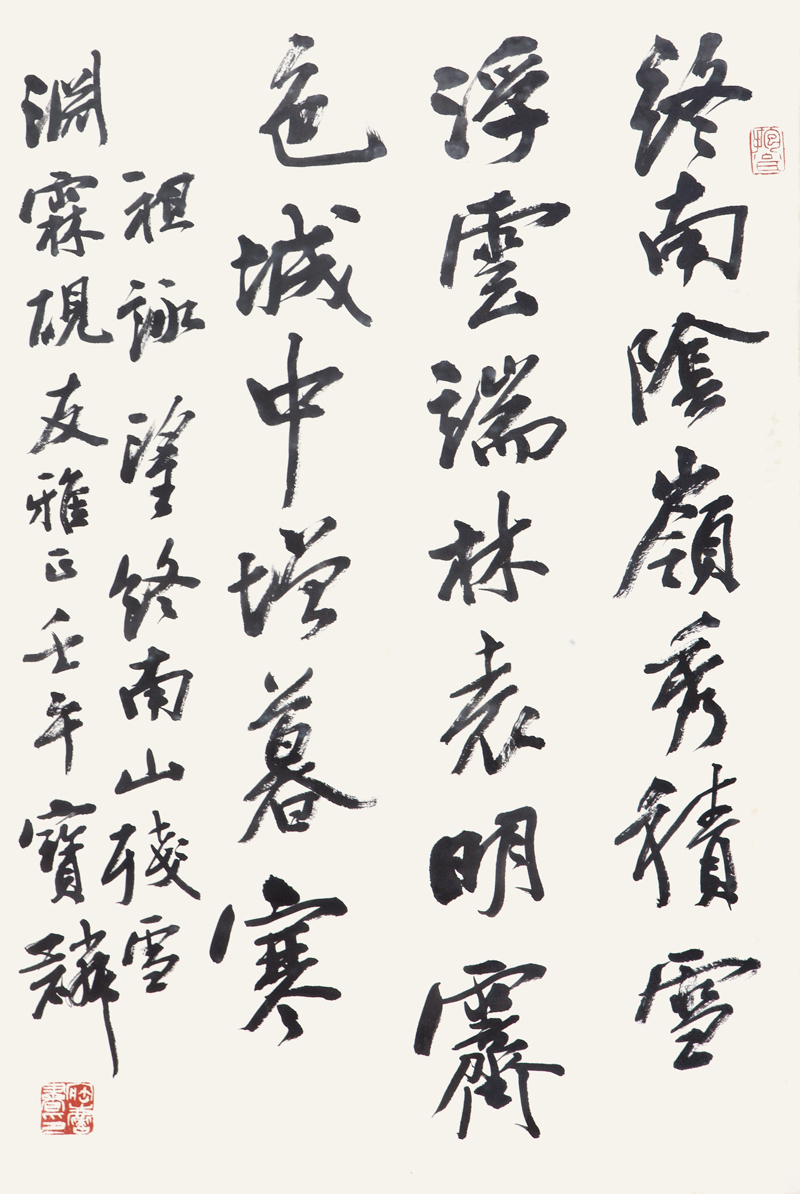 終南陰嶺秀積雪
浮雲端林表明霽
色城中增暮寒
祖詠望終南山殘雪
淵霖硯友雅正壬午寶